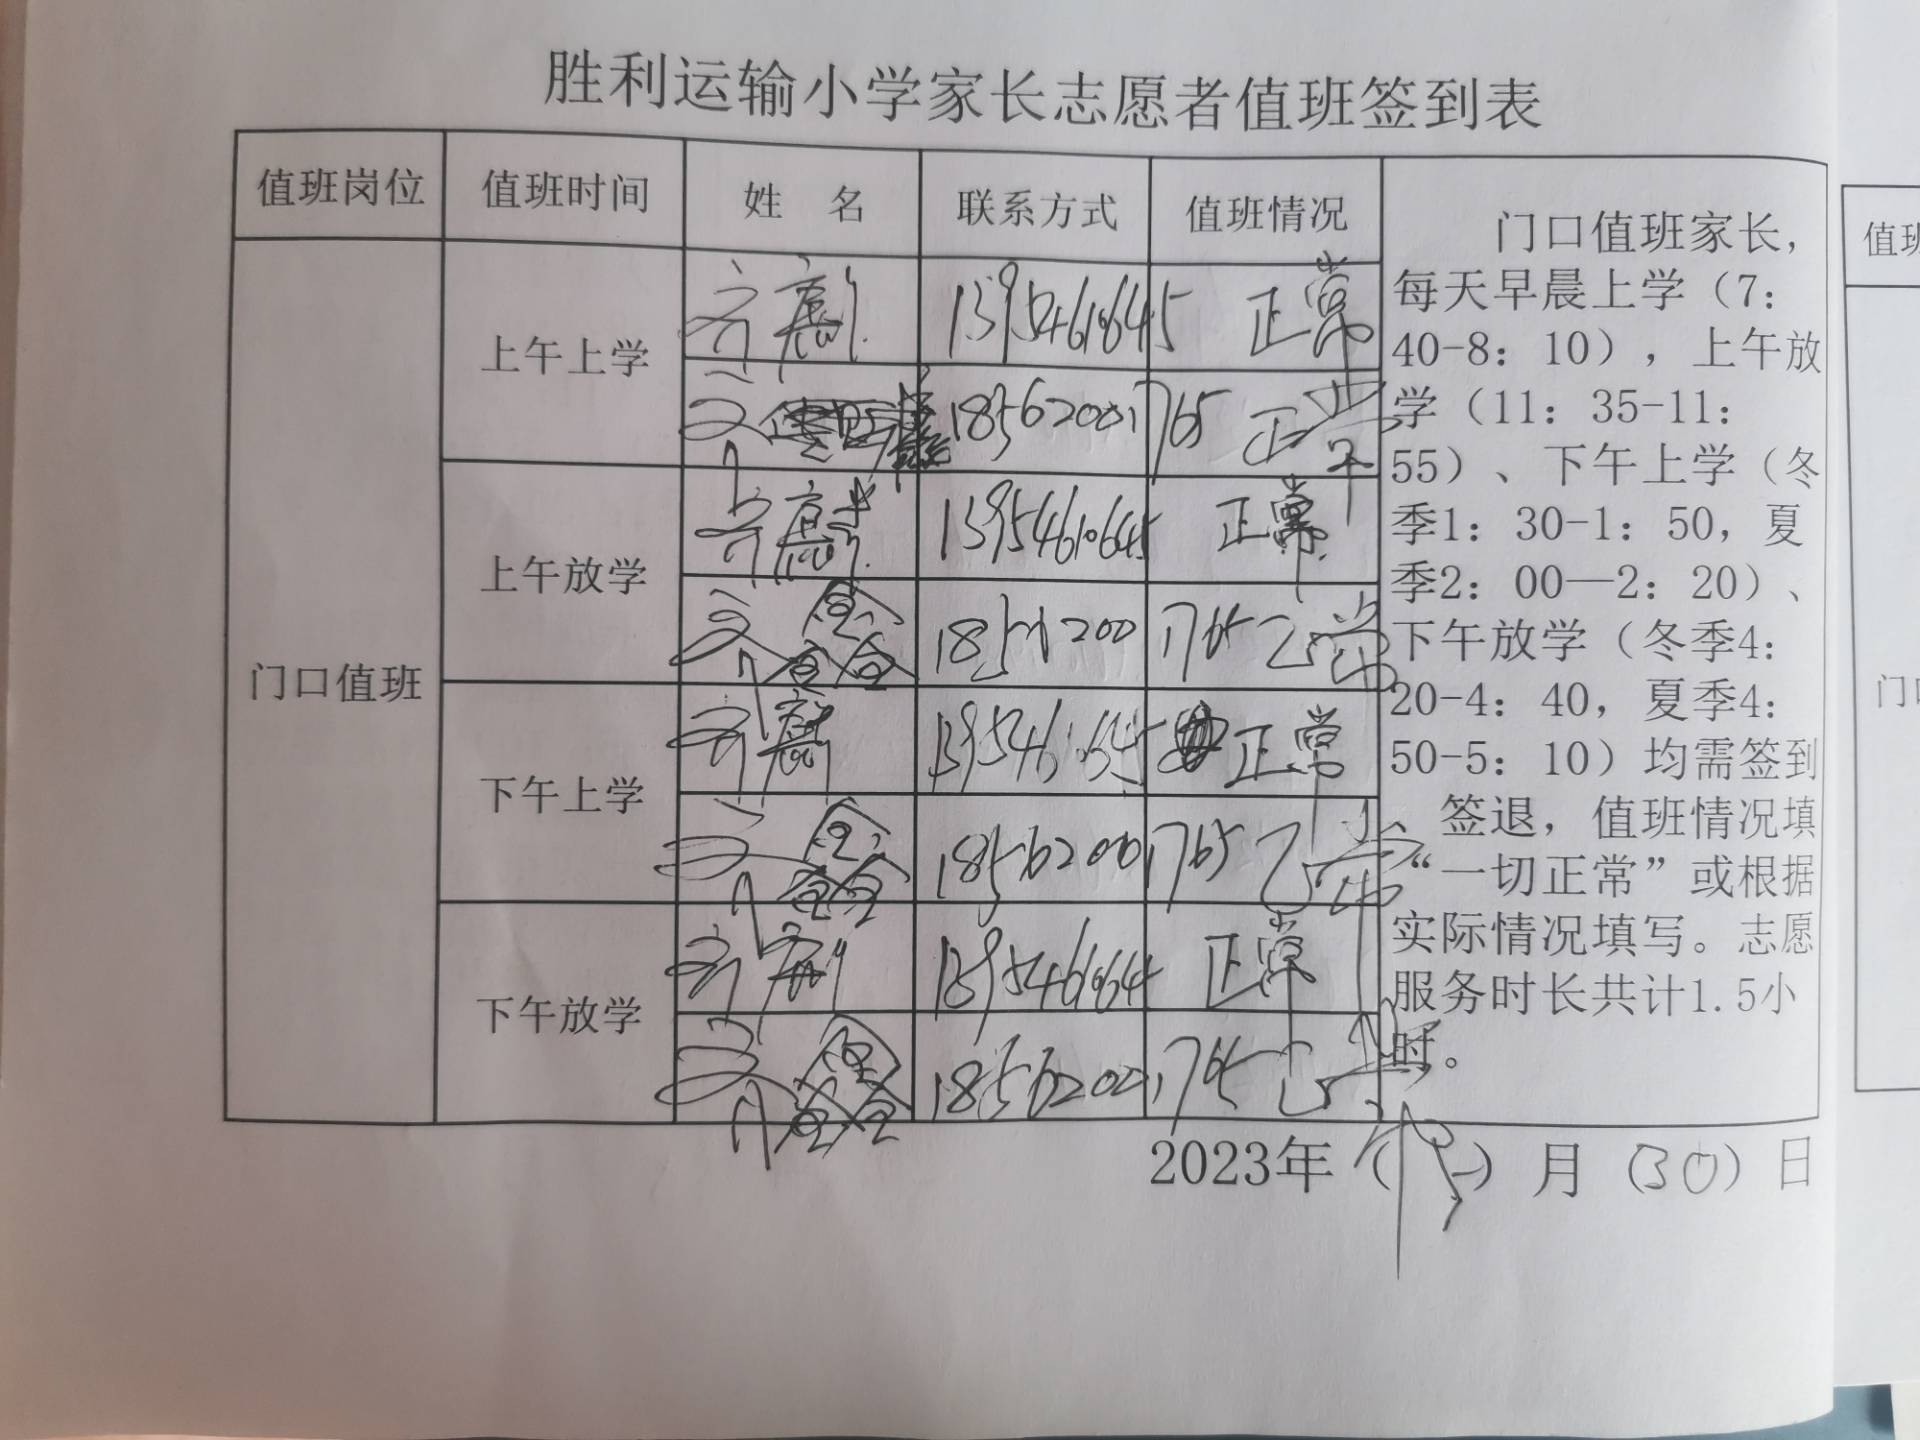 胜利运输小学家长志愿者值班签到表
值班岗位 值班时间 姓 名 联系方式 值班情况
门口值班家长，
每天早晨上学（7：
40-8：10），上午放
学（11：35-11：
55）、下午上学（冬
季1：30-1：50，夏
季2：00—2：20）、
下午放学（冬季4：
20-4：40，夏季4：
50-5：10）均需签到
、签退，值班情况填
“一切正常”或根据
实际情况填写。志愿
服务时长共计1.5小
时。
门口值班
上午上学
齐 13954610645 正常
18562001765 正常
上午放学
齐 13954610645 正常
18562001765 正常
下午上学
齐 13954610645 正常
18562001765 正常
下午放学
齐 1395461064 正常
18562001765
2023年（ ）月（30）日
值班
门口